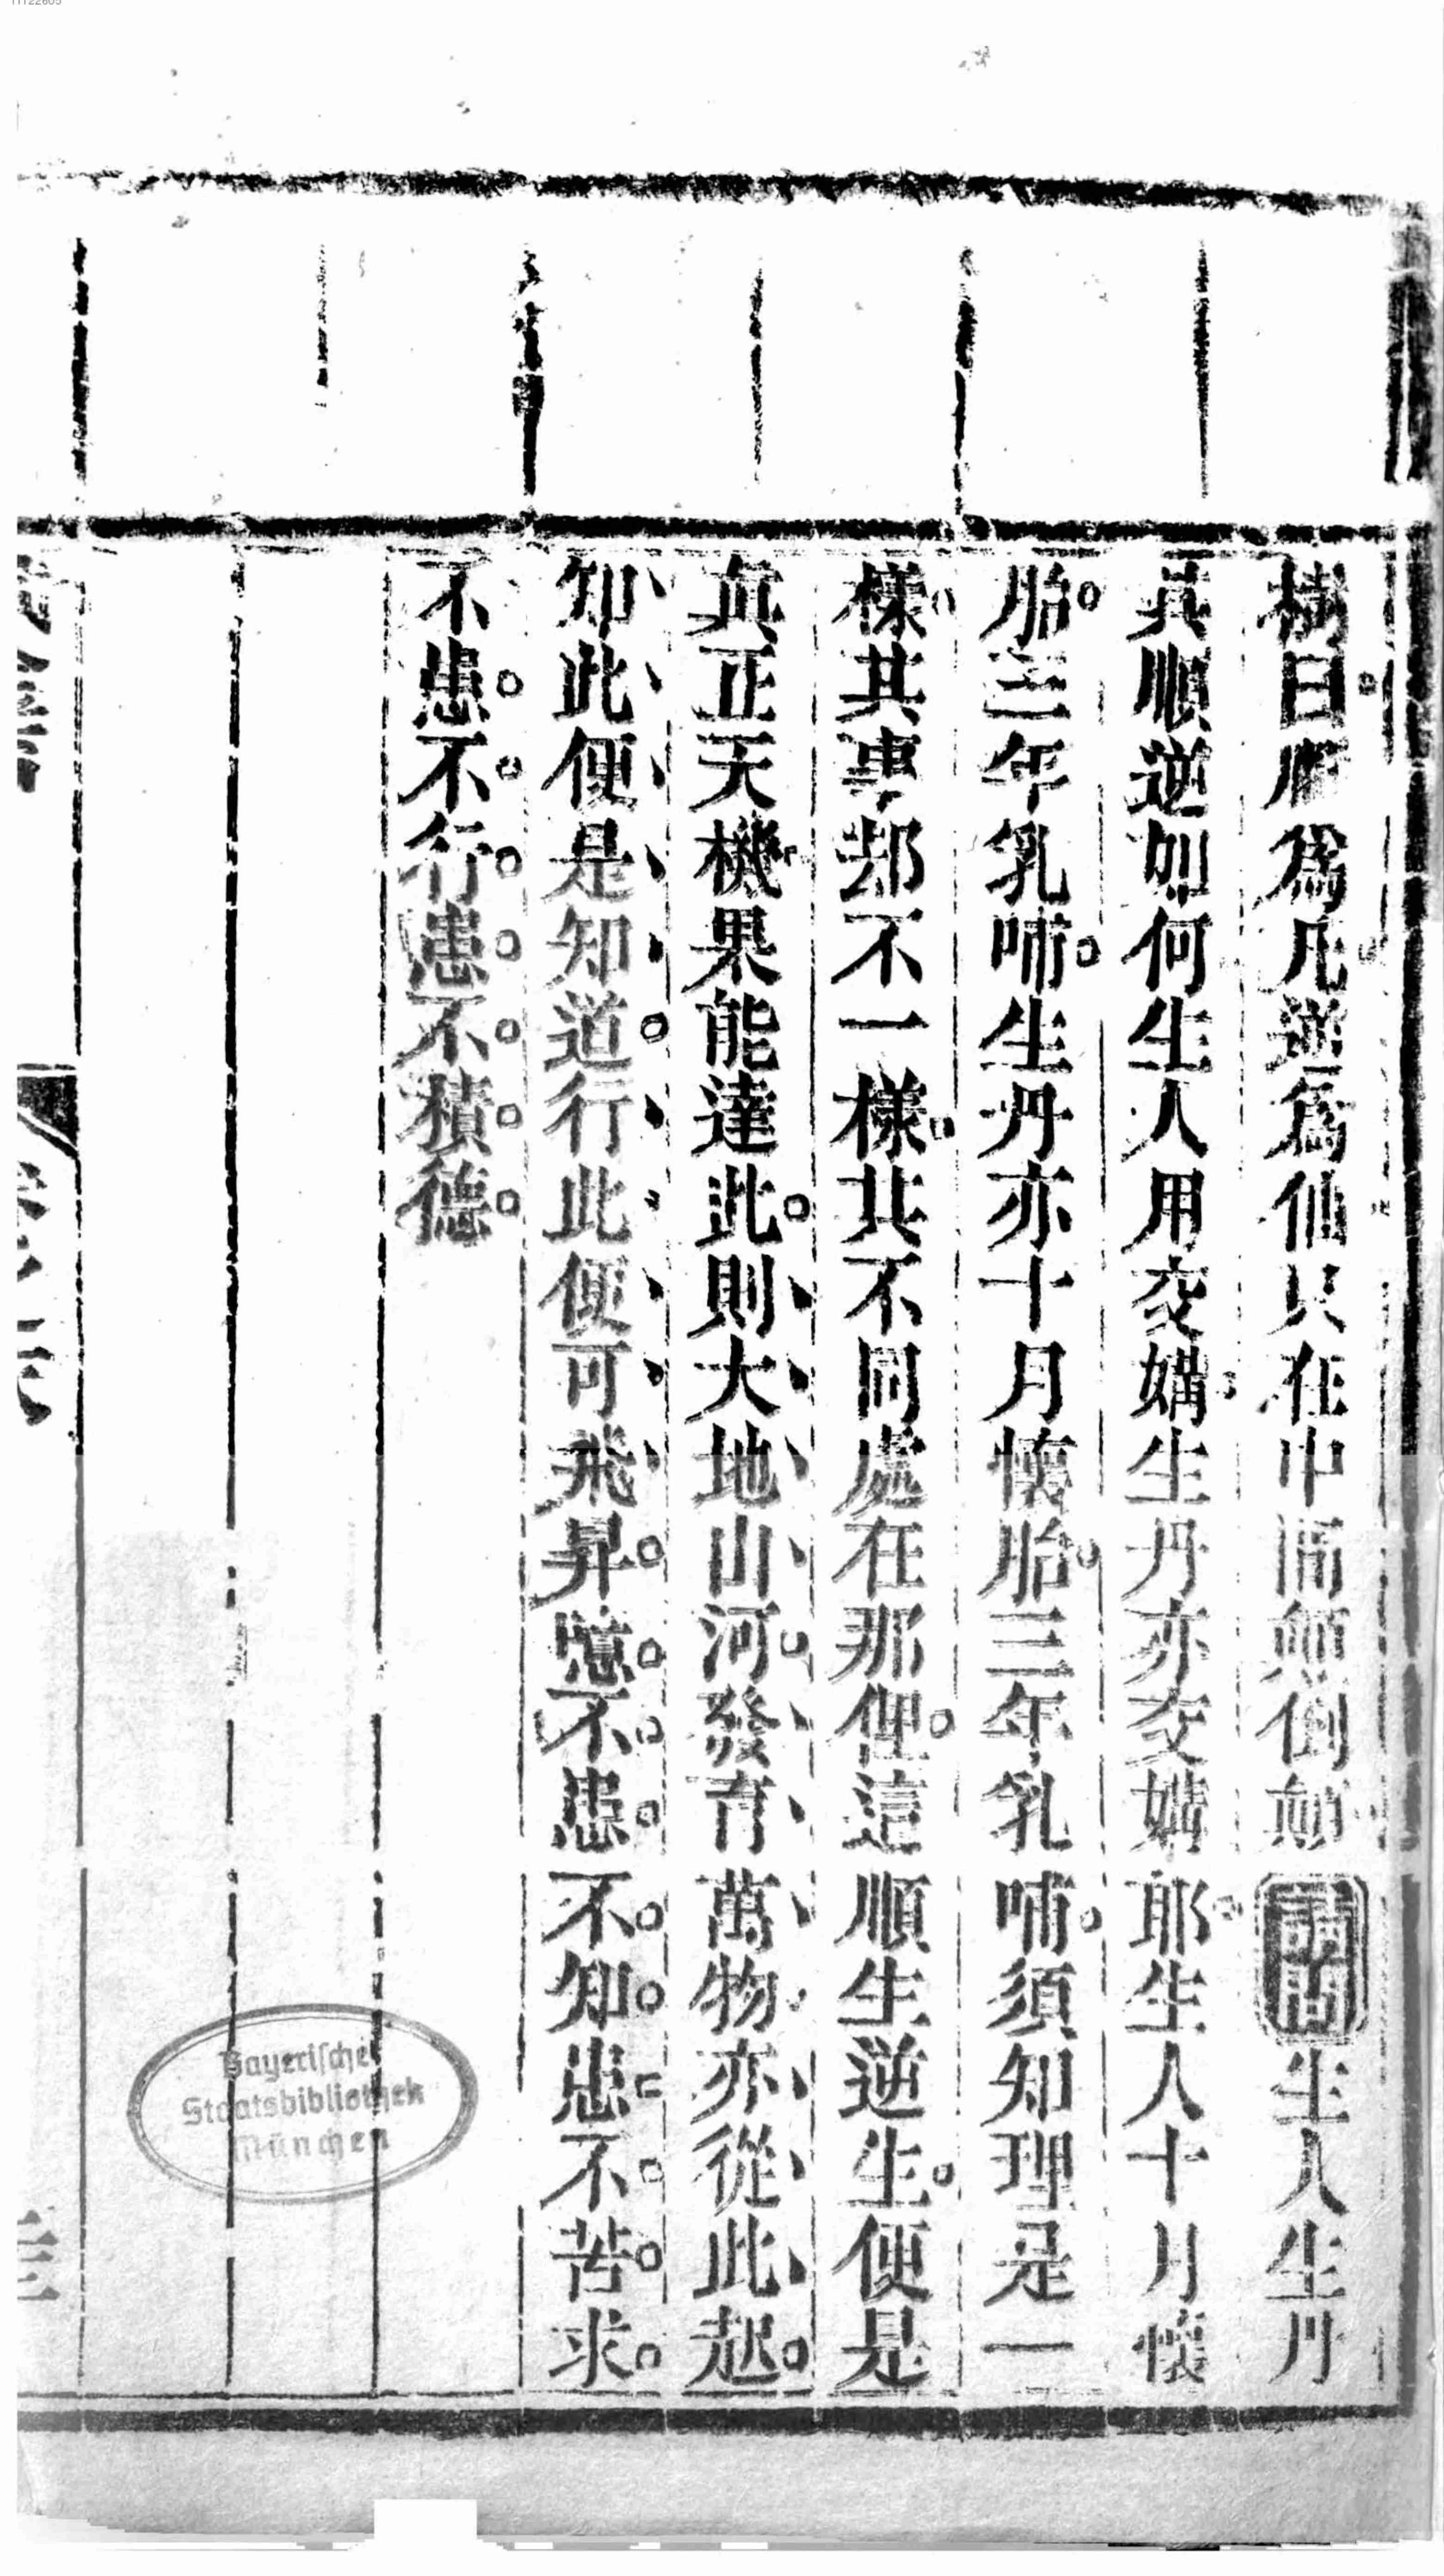 樹曰順爲凡逆爲仙只在中間顛倒顛 生人生丹
其順逆如何生人用交媾生丹亦交媾耶生人十月懷
胎三年乳哺生丹亦十月懷胎三年乳哺須知理是一
樣其事却不一樣其不同處在那俚這順生逆生便是
真正天機果能達此則大地山河發育萬物亦從此起
知此便是知道行此便可飛昇噫不患不知患不苦求
不患不行患不積德
Bayerische
Staatsbibliothek
München